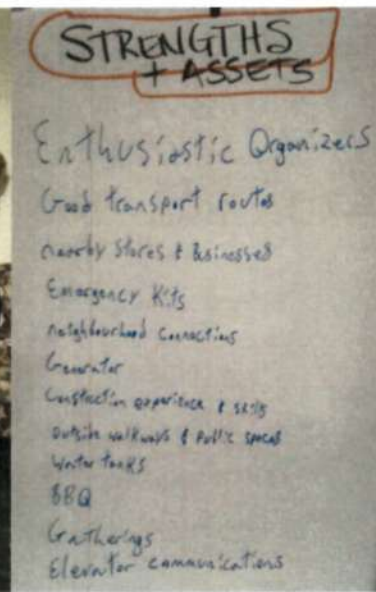 STRENGTHS
+ ASSETS
Enthusiastic Organizers
Good transport routes
nearby Stores & Businesses
Emergency Kits
neighbourhood connections
Generator
Construction experience & skills
outside walkways & public spaces
Water tanks
BBQ
Gatherings
Elevator communications